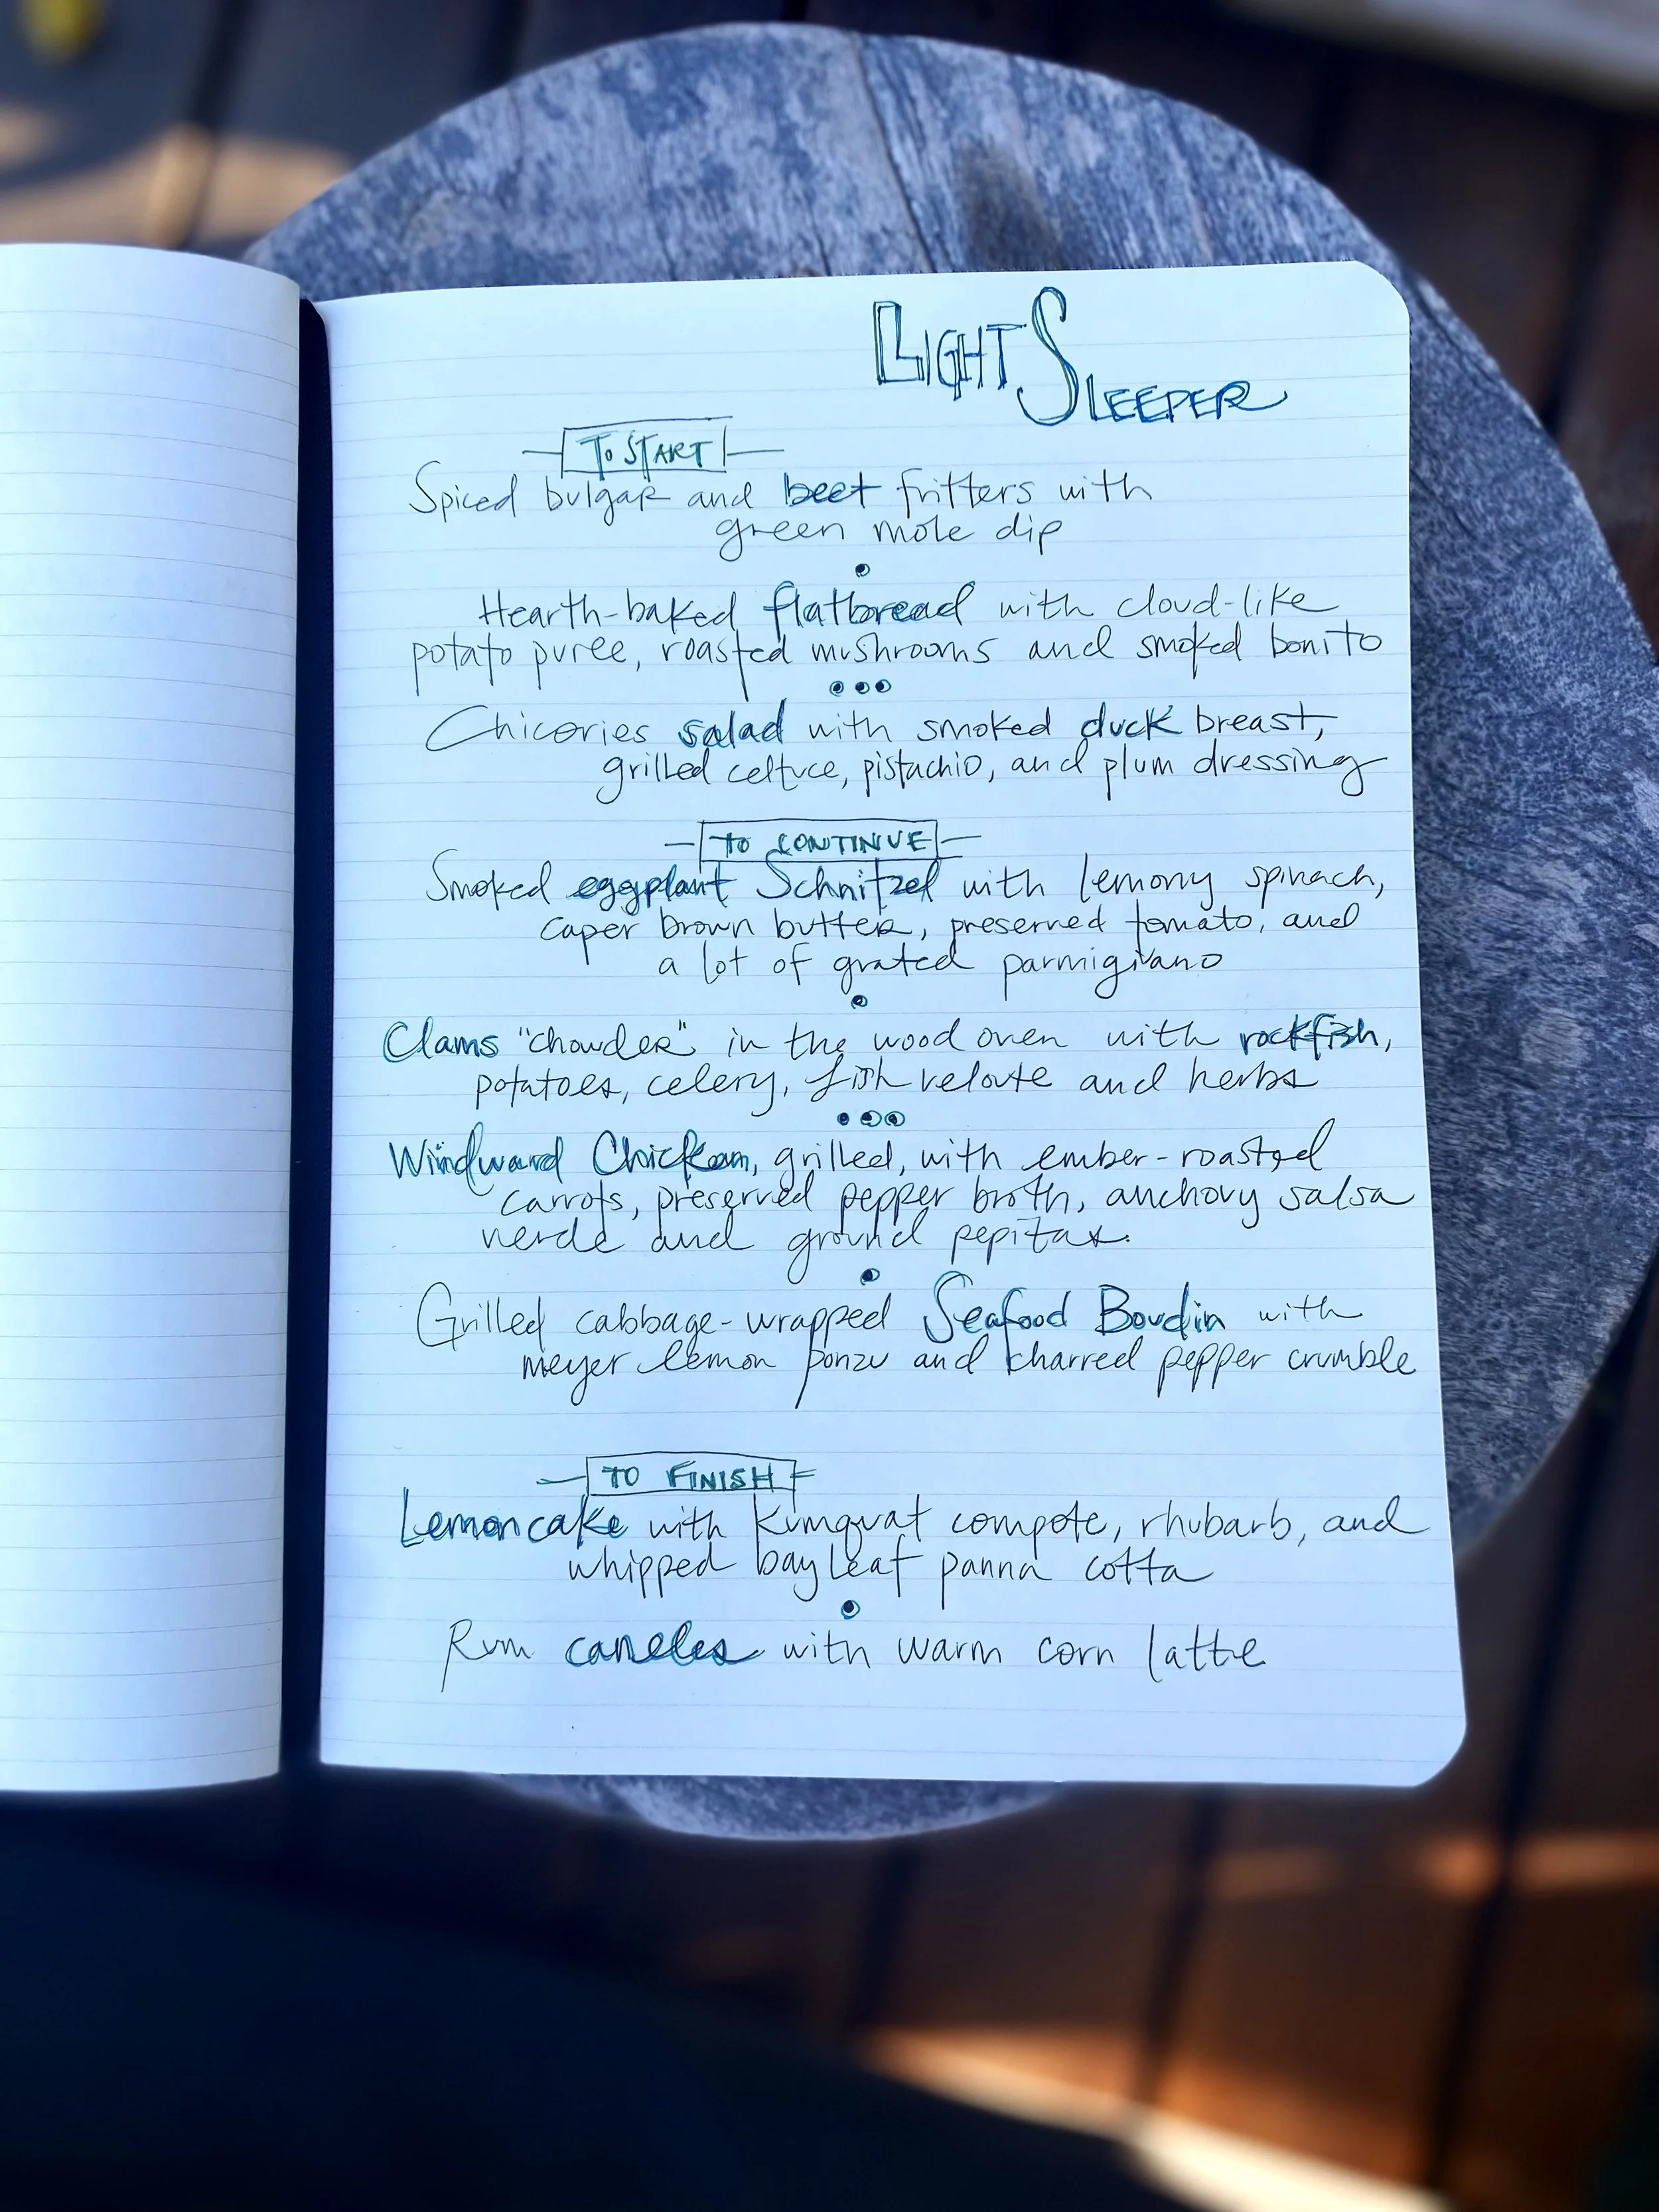 LIGHT SLEEPER
TO START
Spiced bulgar and beet fritters with
green mole dip
Hearth-baked flatbread with cloud-like
potato puree, roasted mushrooms and smoked bonito
Chicories salad with smoked duck breast,
grilled celtuce, pistachio, and plum dressing
TO CONTINUE
Smoked eggplant Schnitzel with lemony spinach,
caper brown butter, preserved tomato, and
a lot of grated parmigiano
Clams "chowder" in the wood oven with rockfish,
potatoes, celery, fish veloute and herbs
Windward Chicken, grilled, with ember-roasted
carrots, preserved pepper broth, anchovy salsa
verde and ground pepitas.
Grilled cabbage-wrapped Seafood Boudin with
meyer lemon ponzu and charred pepper crumble
TO FINISH
Lemon cake with kumquat compote, rhubarb, and
whipped bay leaf panna cotta
Rum caneles with warm corn latte